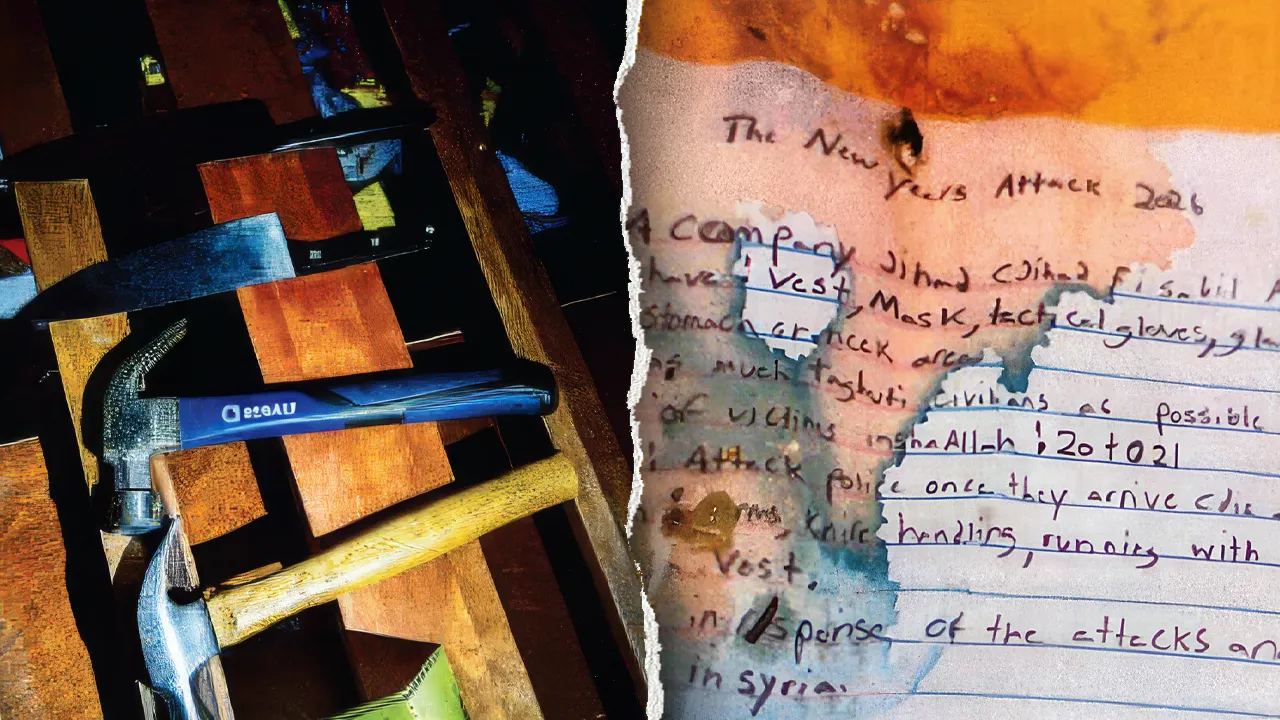 The New
Years Attack 2026
A Company Jihad (Jihad fi sabil
have: Vest, Mask, tactical gloves,
stomach or neck area
much taghuti civilians as possible
of victims inshaAllah ! 20 to 21
Attack police once they arrive
knife handling, running with
Vest.
in response of the attacks
in syria.